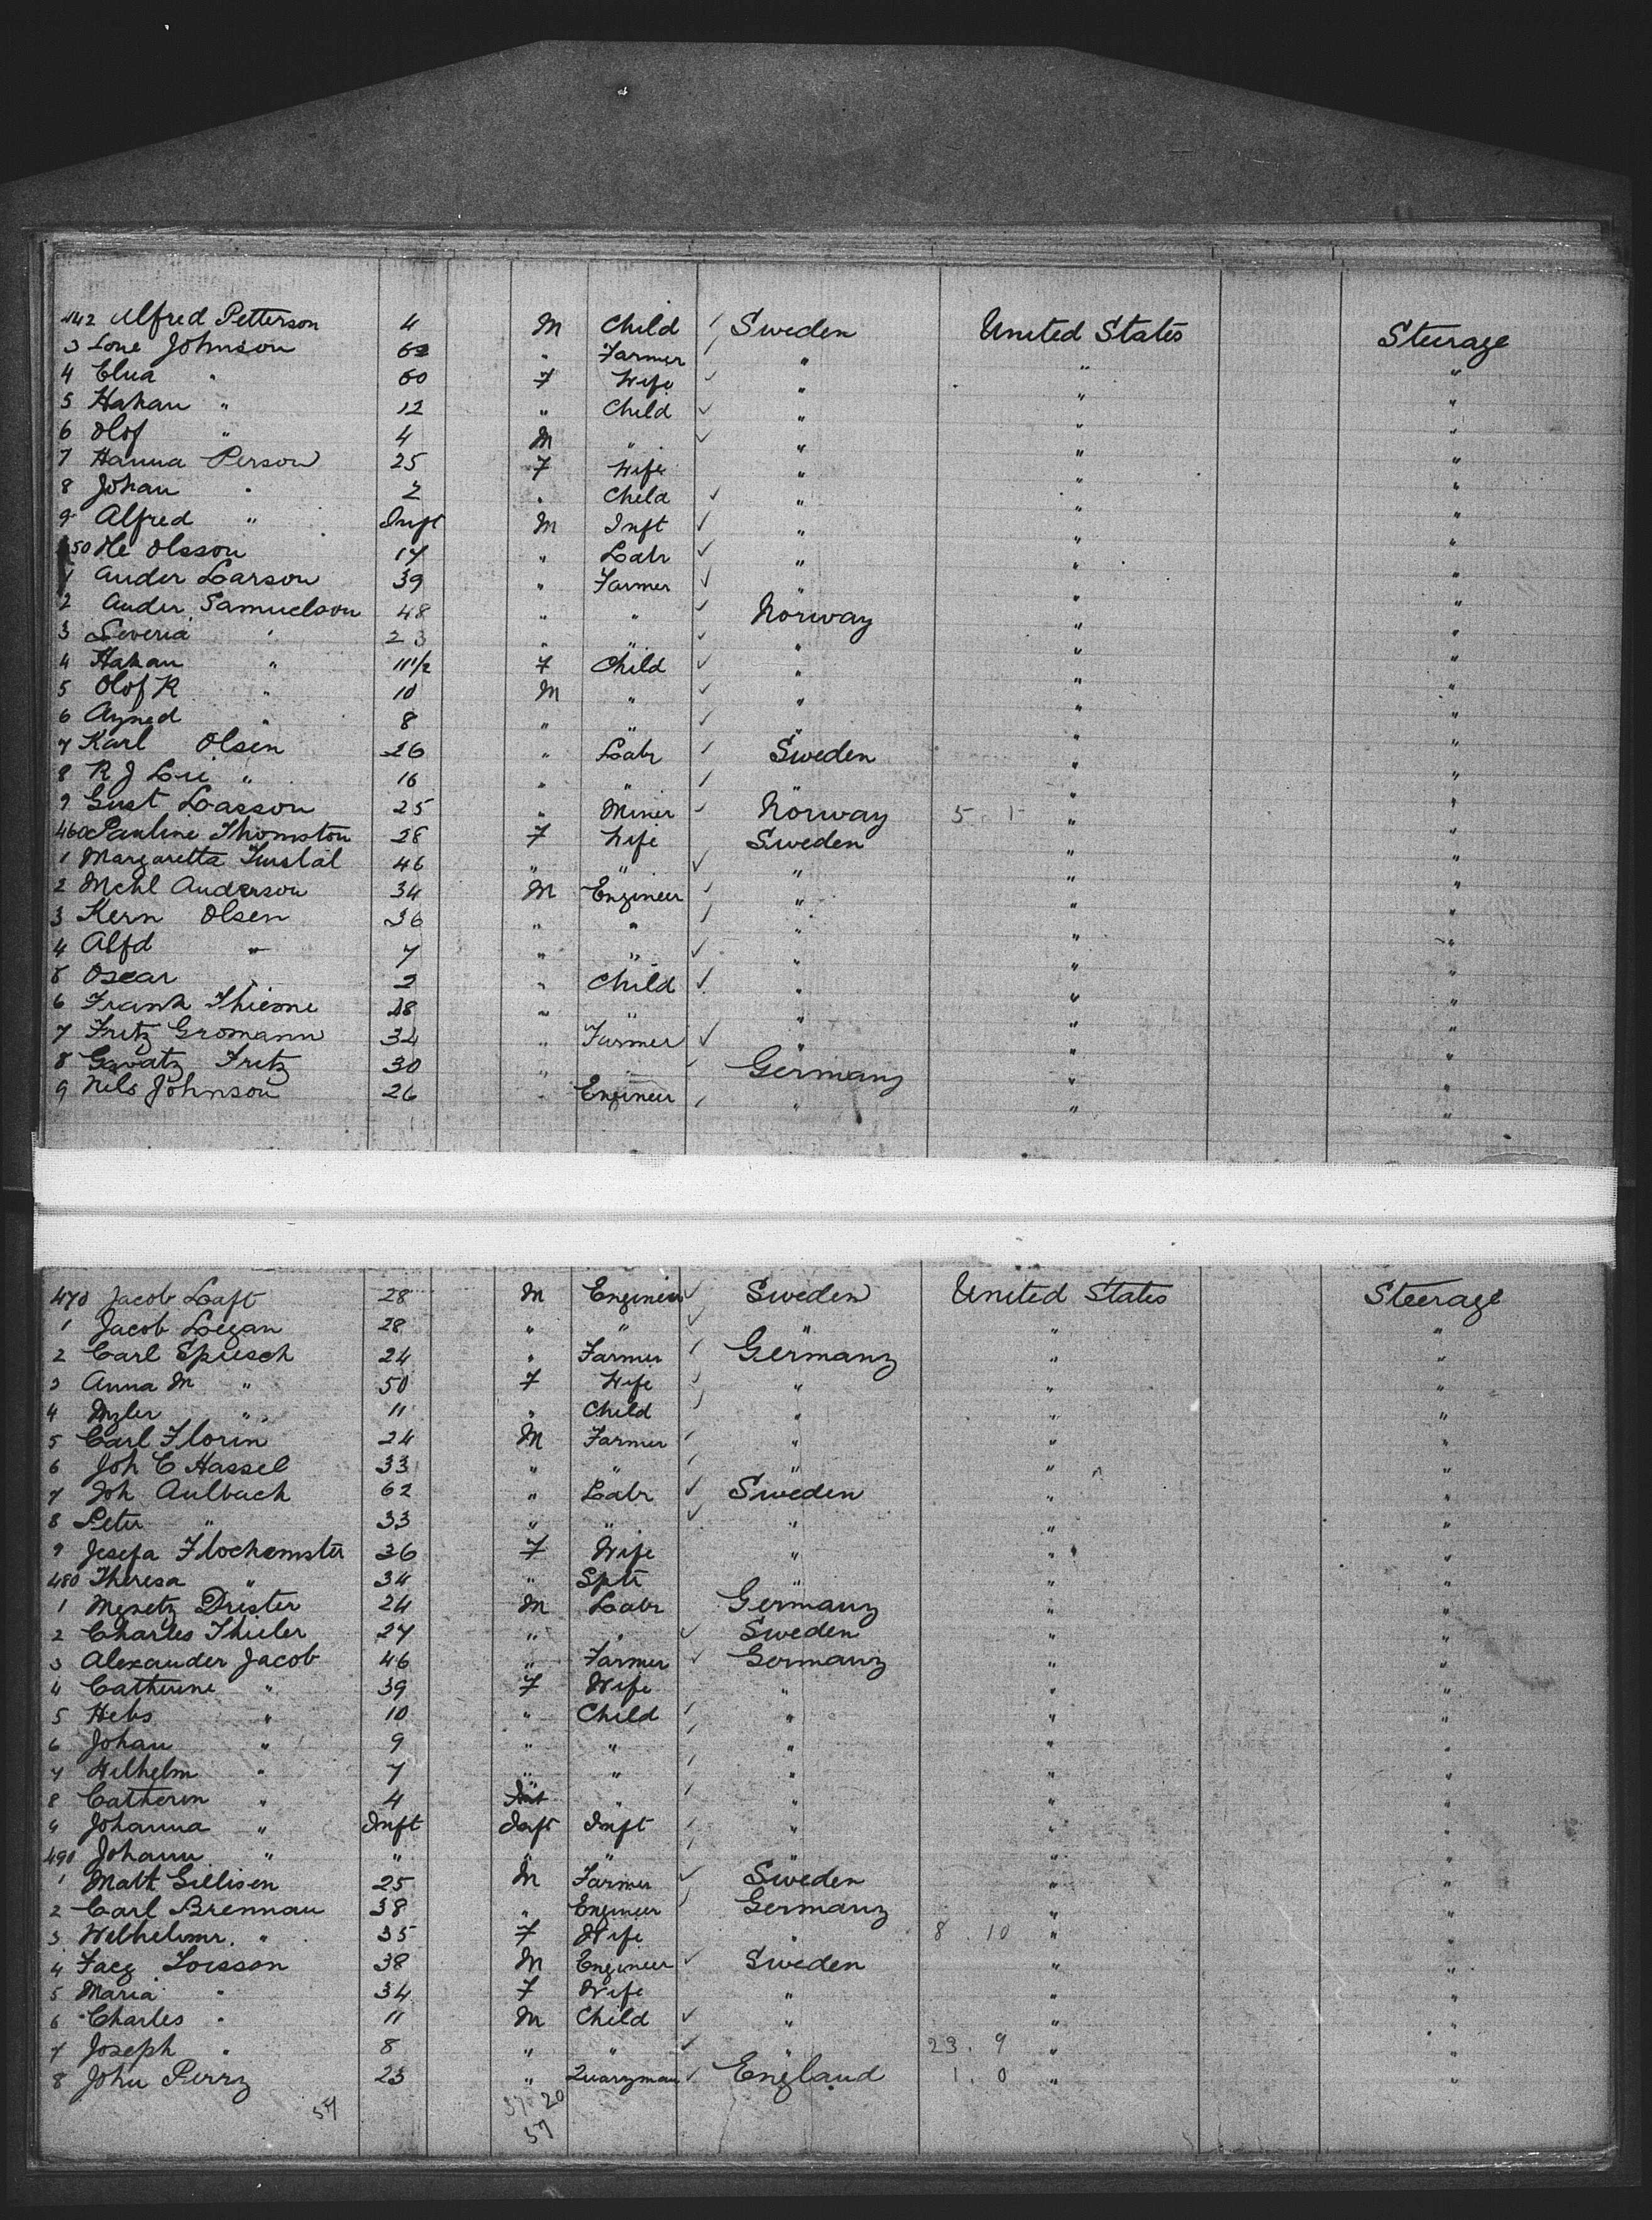 442 Alfred Petterson 4 M Child / Sweden United States Steerage
3 Lone Johnson 62 " Farmer / " " "
4 Elna " 60 F Wife ✓ " " "
5 Hakan " 12 " Child ✓ " " "
6 Olof " 4 M " ✓ " " "
7 Hanna Person 25 F Wife " " "
8 Johan " 2 " Child ✓ " " "
9 Alfred " Inft M Inft ✓ " " "
450 Ole Olsson 17 " Labr ✓ " " "
1 Ander Larson 39 " Farmer ✓ " " "
2 Ander Samuelson 48 " " ✓ Norway " "
3 Severia " 23 " " ✓ " " "
4 Hakan " 11 1/2 F Child ✓ " " "
5 Olof K " 10 M " ✓ " " "
6 Ayned " 8 " " ✓ " " "
7 Karl Olsen 26 " Labr / Sweden " "
8 R J Lri " 16 " " / " " "
9 Gust Lasson 25 " Miner ✓ Norway 5 1 " "
460 Pauline Thomston 28 F Wife Sweden " "
1 Margaretta 46 " " ✓ " " "
2 Mchl Anderson 34 M Engineer / " " "
3 Kern Olsen 36 " " / " " "
4 Alfd " 7 " " ✓ " " "
5 Oscar " 2 " Child ✓ " " "
6 Frank Thieme 28 " " " " "
7 Fritz Gromann 32 " Farmer ✓ " " "
8 Gavatz Fritz 30 " " / Germany " "
9 Nils Johnson 26 " Engineer / " " "
470 Jacob Laft 28 M Engineer ✓ Sweden United States Steerage
1 Jacob Legan 28 " " ✓ " " "
2 Carl Spiesch 24 " Farmer / Germany " "
3 Anna M " 50 F Wife / " " "
4 " 11 " Child / " " "
5 Carl Florin 24 M Farmer / " " "
6 Joh C Hassel 33 " " / " " "
7 Joh Aulbach 62 " Labr ✓ Sweden " "
8 Peter " 33 " " ✓ " " "
9 Jesefa Flochemster 36 F Wife " " "
480 Theresa " 34 " Sptr " " "
1 Mezetz Drester 24 M Labr Germany " "
2 Charles Thieler 27 " " ✓ Sweden " "
3 Alexander Jacob 46 " Farmer ✓ Germany " "
4 Catherine " 39 F Wife " " "
5 Hebs " 10 " Child / " " "
6 Johan " 9 " " / " " "
7 Wilhelm " 7 " " / " " "
8 Catherin " 4 " / " " "
9 Johanna " Inft Inft Inft / " " "
490 Johann " " " " / " " "
1 Math Gillisen 25 M Farmer ✓ Sweden " "
2 Carl Brennan 38 " Engineer / Germany " "
3 Wilhelimr. " 35 F Wife " 8. 10 " "
4 Facz Loisson 38 M Engineer ✓ Sweden " "
5 Maria " 34 F Wife " " "
6 Charles " 11 M Child ✓ " " "
7 Joseph " 8 " " ✓ " 23. 9 " "
8 John Perry 23 " Quaryman ✓ England 1. 0 " "
57 37 20
57